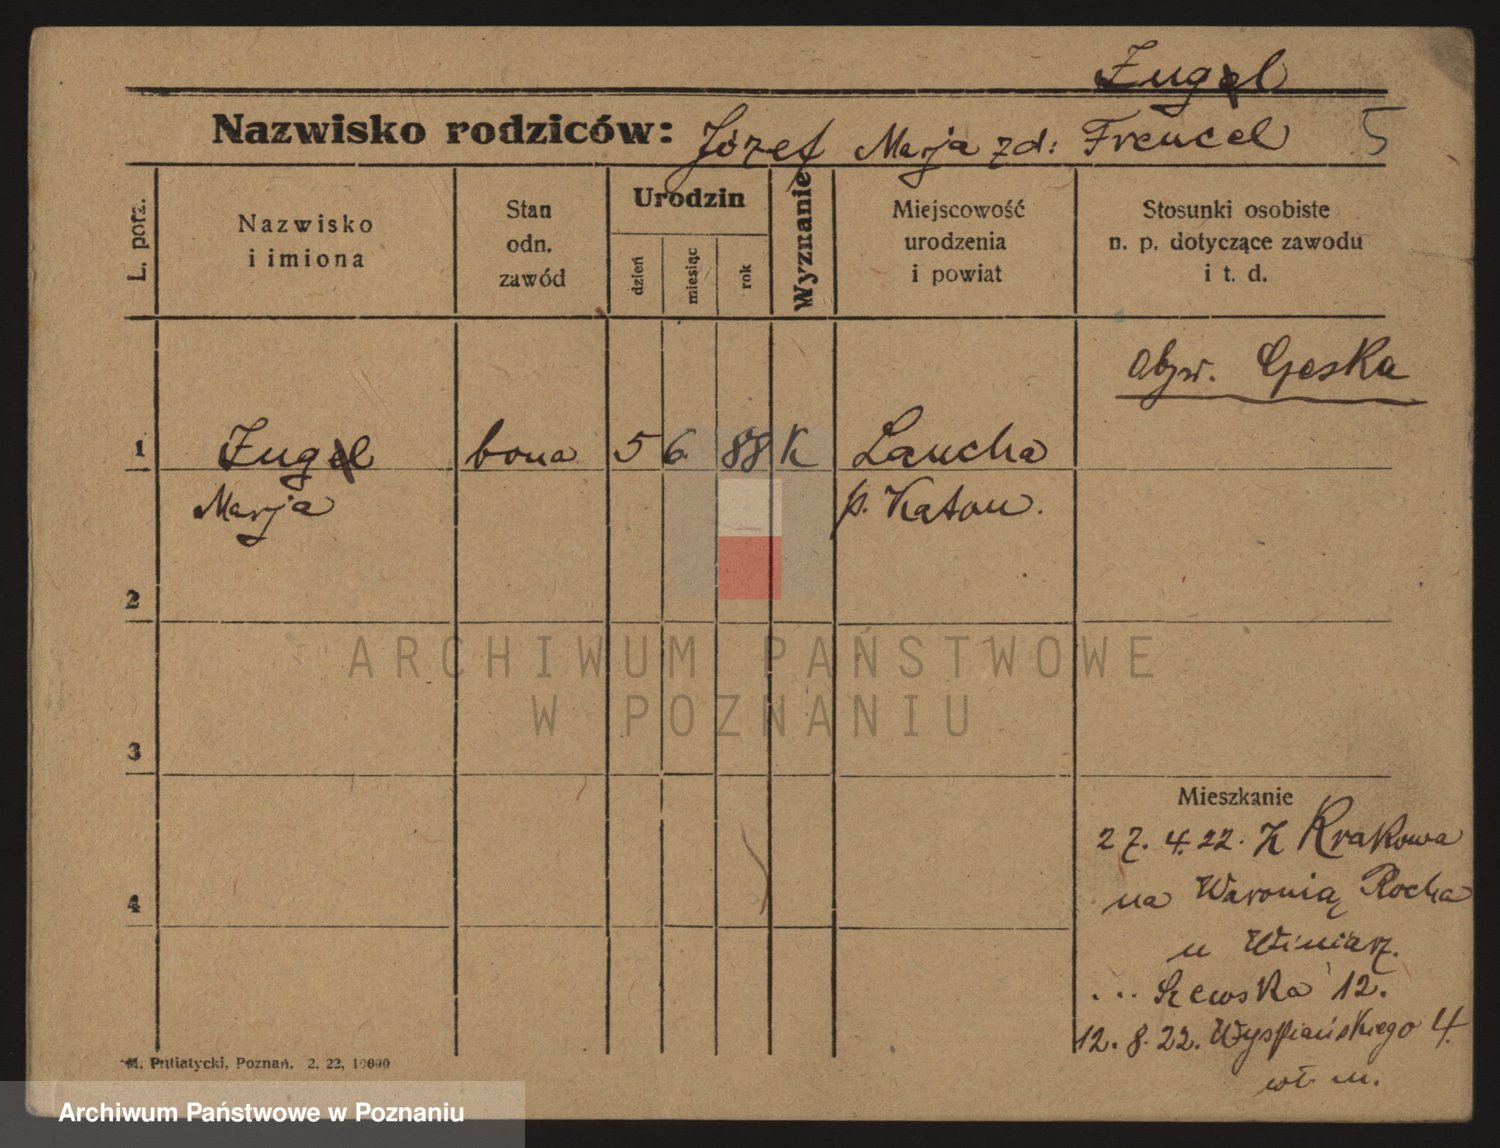 Zugel
Nazwisko rodziców: Józef Marja zd: Frencel 5
L. porz.
Nazwisko
i imiona
Stan
odn.
zawód
Urodzin
dzień
miesiąc
rok
Wyznanie
Miejscowość
urodzenia
i powiat
Stosunki osobiste
n. p. dotyczące zawodu
i t. d.
obyw. Czeska
1 Zugel bona 5 6 88 K Laucha
Marja p. Katow.
2
3
4
Mieszkanie
27. 4. 22. z Krakowa
na Waronią Rocha
u Winiarz.
... Szewska 12.
12. 8. 22. Wyspiańskiego 4.
wł. m.
M. Putiatycki, Poznań. 2. 22, 10000
ARCHIWUM PAŃSTWOWE
W POZNANIU
Archiwum Państwowe w Poznaniu